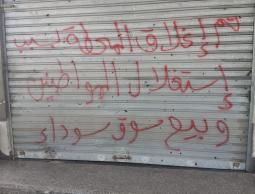 تم إغلاق المحطة لسبب
إستغلال المواطنين
وبيع سوق سوداء